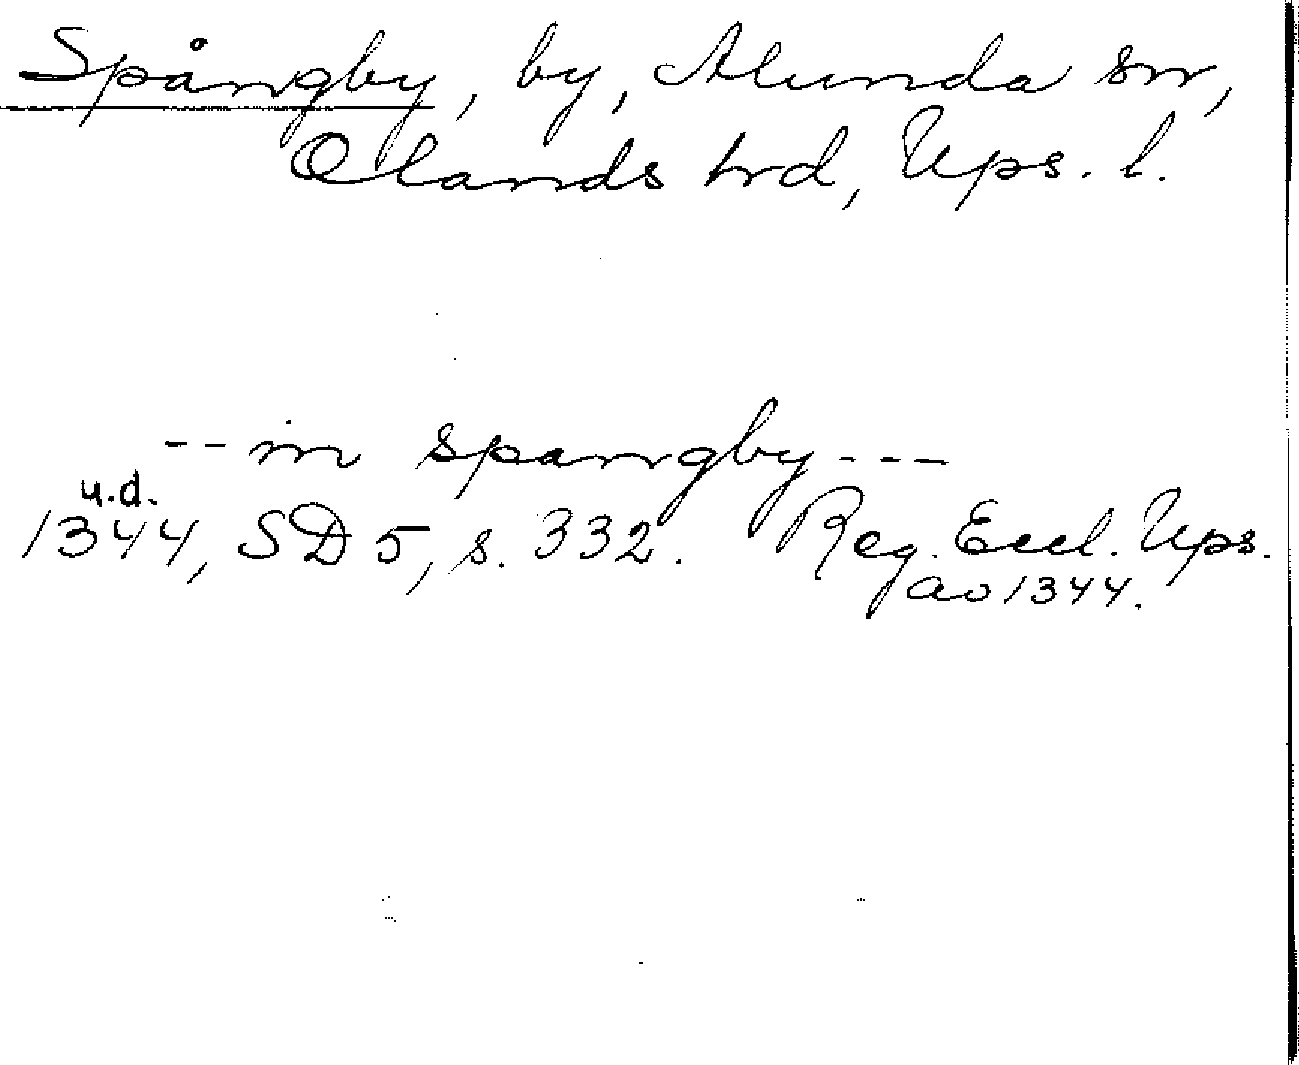 Spångby, by, Alunda sn,
Olands hd, Ups. l.
-- in spangby ---
u.d.
1344, SD 5, s. 332. Reg. Eccl. Ups.
ao 1344.